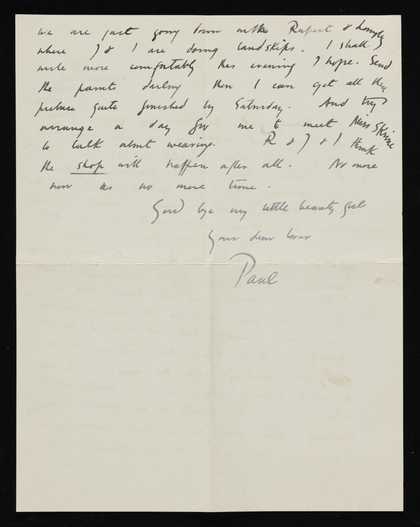 we are just going down with Rupert &
where J & I are doing landskips. I shall
write more comfortably this evening I hope. Send
the paints darling then I can get all the
picture quite finished by Saturday. And try
arrange a day for me to meet Miss
to talk about weaving. R & J & I think
the shop will happen after all. No more
now as no more time.
Good bye my little beauty girl
Your dear lover
Paul